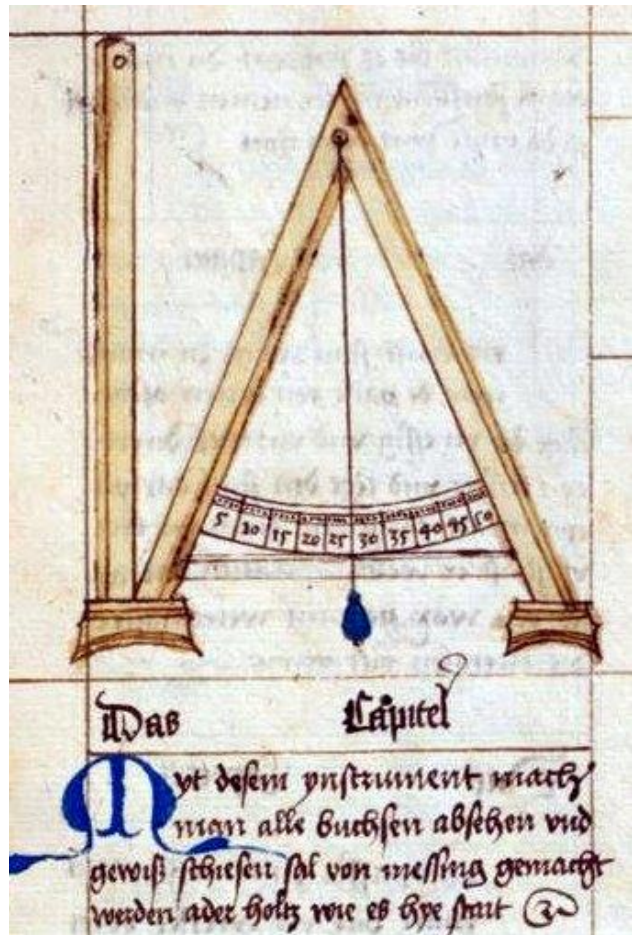 5 10 15 20 25 30 35 40 45 50
Das Capitel
Myt desem ynstrument mach
man alle buchsen absehen vnd
gewiß schiesen sal von messing gemacht
werden ader holtz wie es hye stat